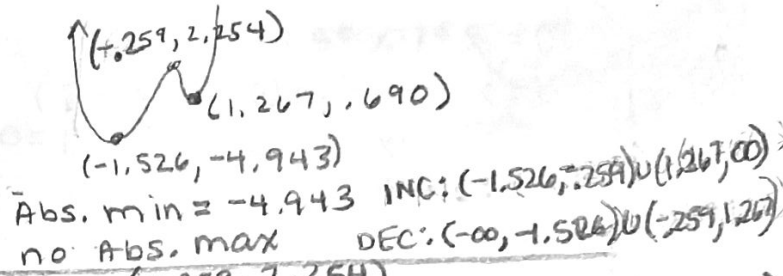 (-.259, 2.254)
(1.267, .690)
(-1.526, -4.943)
Abs. min = -4.943 INC: (-1.526, -.259)∪(1.267, ∞)
no Abs. max DEC: (-∞, -1.526)∪(-.259, 1.267)